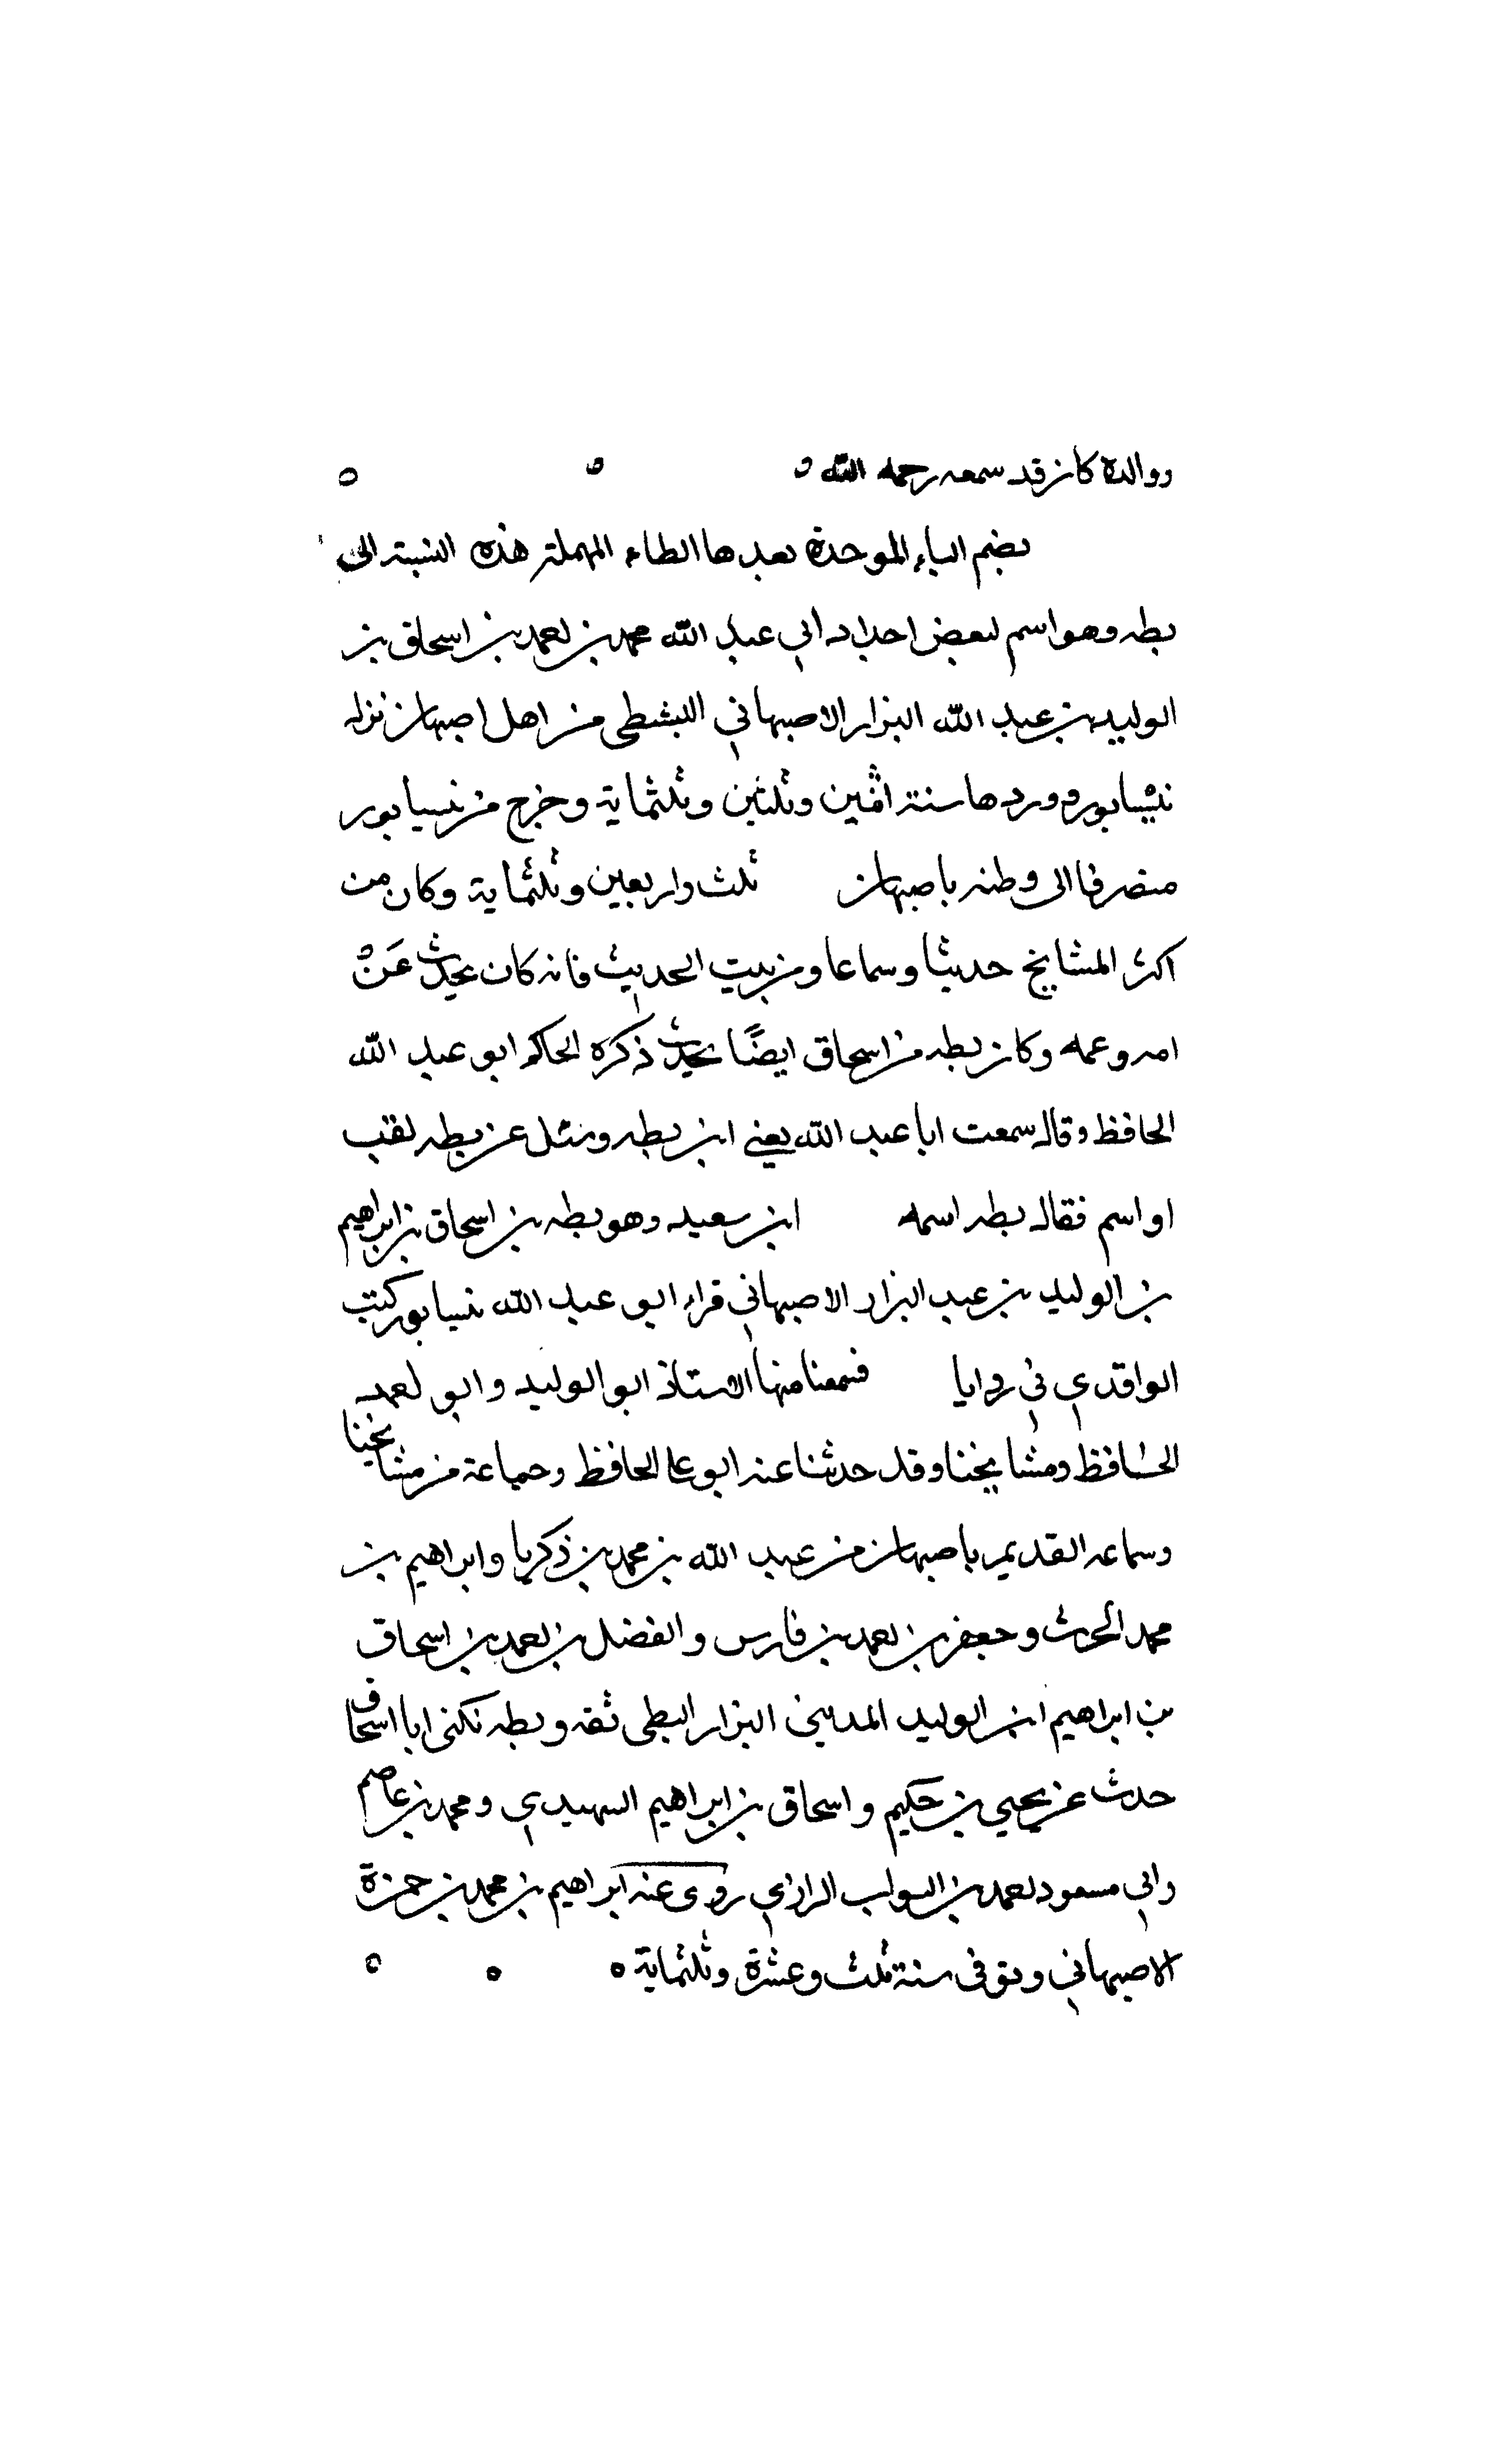 ووالده كان قد سمعه رحمه الله ٥ ٥ ٥
بضم الباء الموحدة بعدها الطاء المهملة هذه النسبة الى
بطه وهو اسم لبعض اجداد ابي عبد الله محمد بن احمد بن اسحاق بن
الوليد بن عبد الله البزار الاصبهاني البطي من اهل اصبهان نزل
نيسابور وردها سنة اثنين وثلثين وثلثماية وخرج من نيسابور
منصرفا الى وطنه باصبهان ثلث واربعين وثلثماية وكان من
اكثر المشايخ حديثا وسماعا ومن بيت الحديث فانه كان يحدث عن
امه وعمه وكان بطه من اسحاق ايضًا يحدث ذكره الحاكم ابو عبد الله
الحافظ وقال سمعت ابا عبد الله يعني ابن بطه وسئل عن بطه لقب
او اسم فقال بطه اسمه ابن سعيد وهو بطه بن اسحاق بن ابراهيم
بن الوليد بن عبد البزار الاصبهاني قراء ابو عبد الله نيسابور كتب
الواقدي في روايا فسمعنا منها الاستاذ ابو الوليد وابو احمد
الحافظ ومشايخنا وقد حدثنا عنه ابو علي الحافظ وجماعة من مشايخنا
وسماعه القديم باصبهان من عبد الله بن محمد بن ذكريا وابراهيم بن
محمد الحرث وجعفر بن احمد بن فارس والفضل بن احمد بن اسحاق
بن ابراهيم ابن الوليد المديني البزار البطي ثقه وبطه تكنى ابا اسحاق
حدث عن يحيي بن حكيم واسحاق بن ابراهيم الشهيدي ومحمد بن عاصم
وابي مسعود احمد بن الرازي روى عنه ابراهيم بن محمد بن حمزة
الاصبهاني وتوفى سنة ثلث وعشرة وثلثماية ٥ ٥ ٥